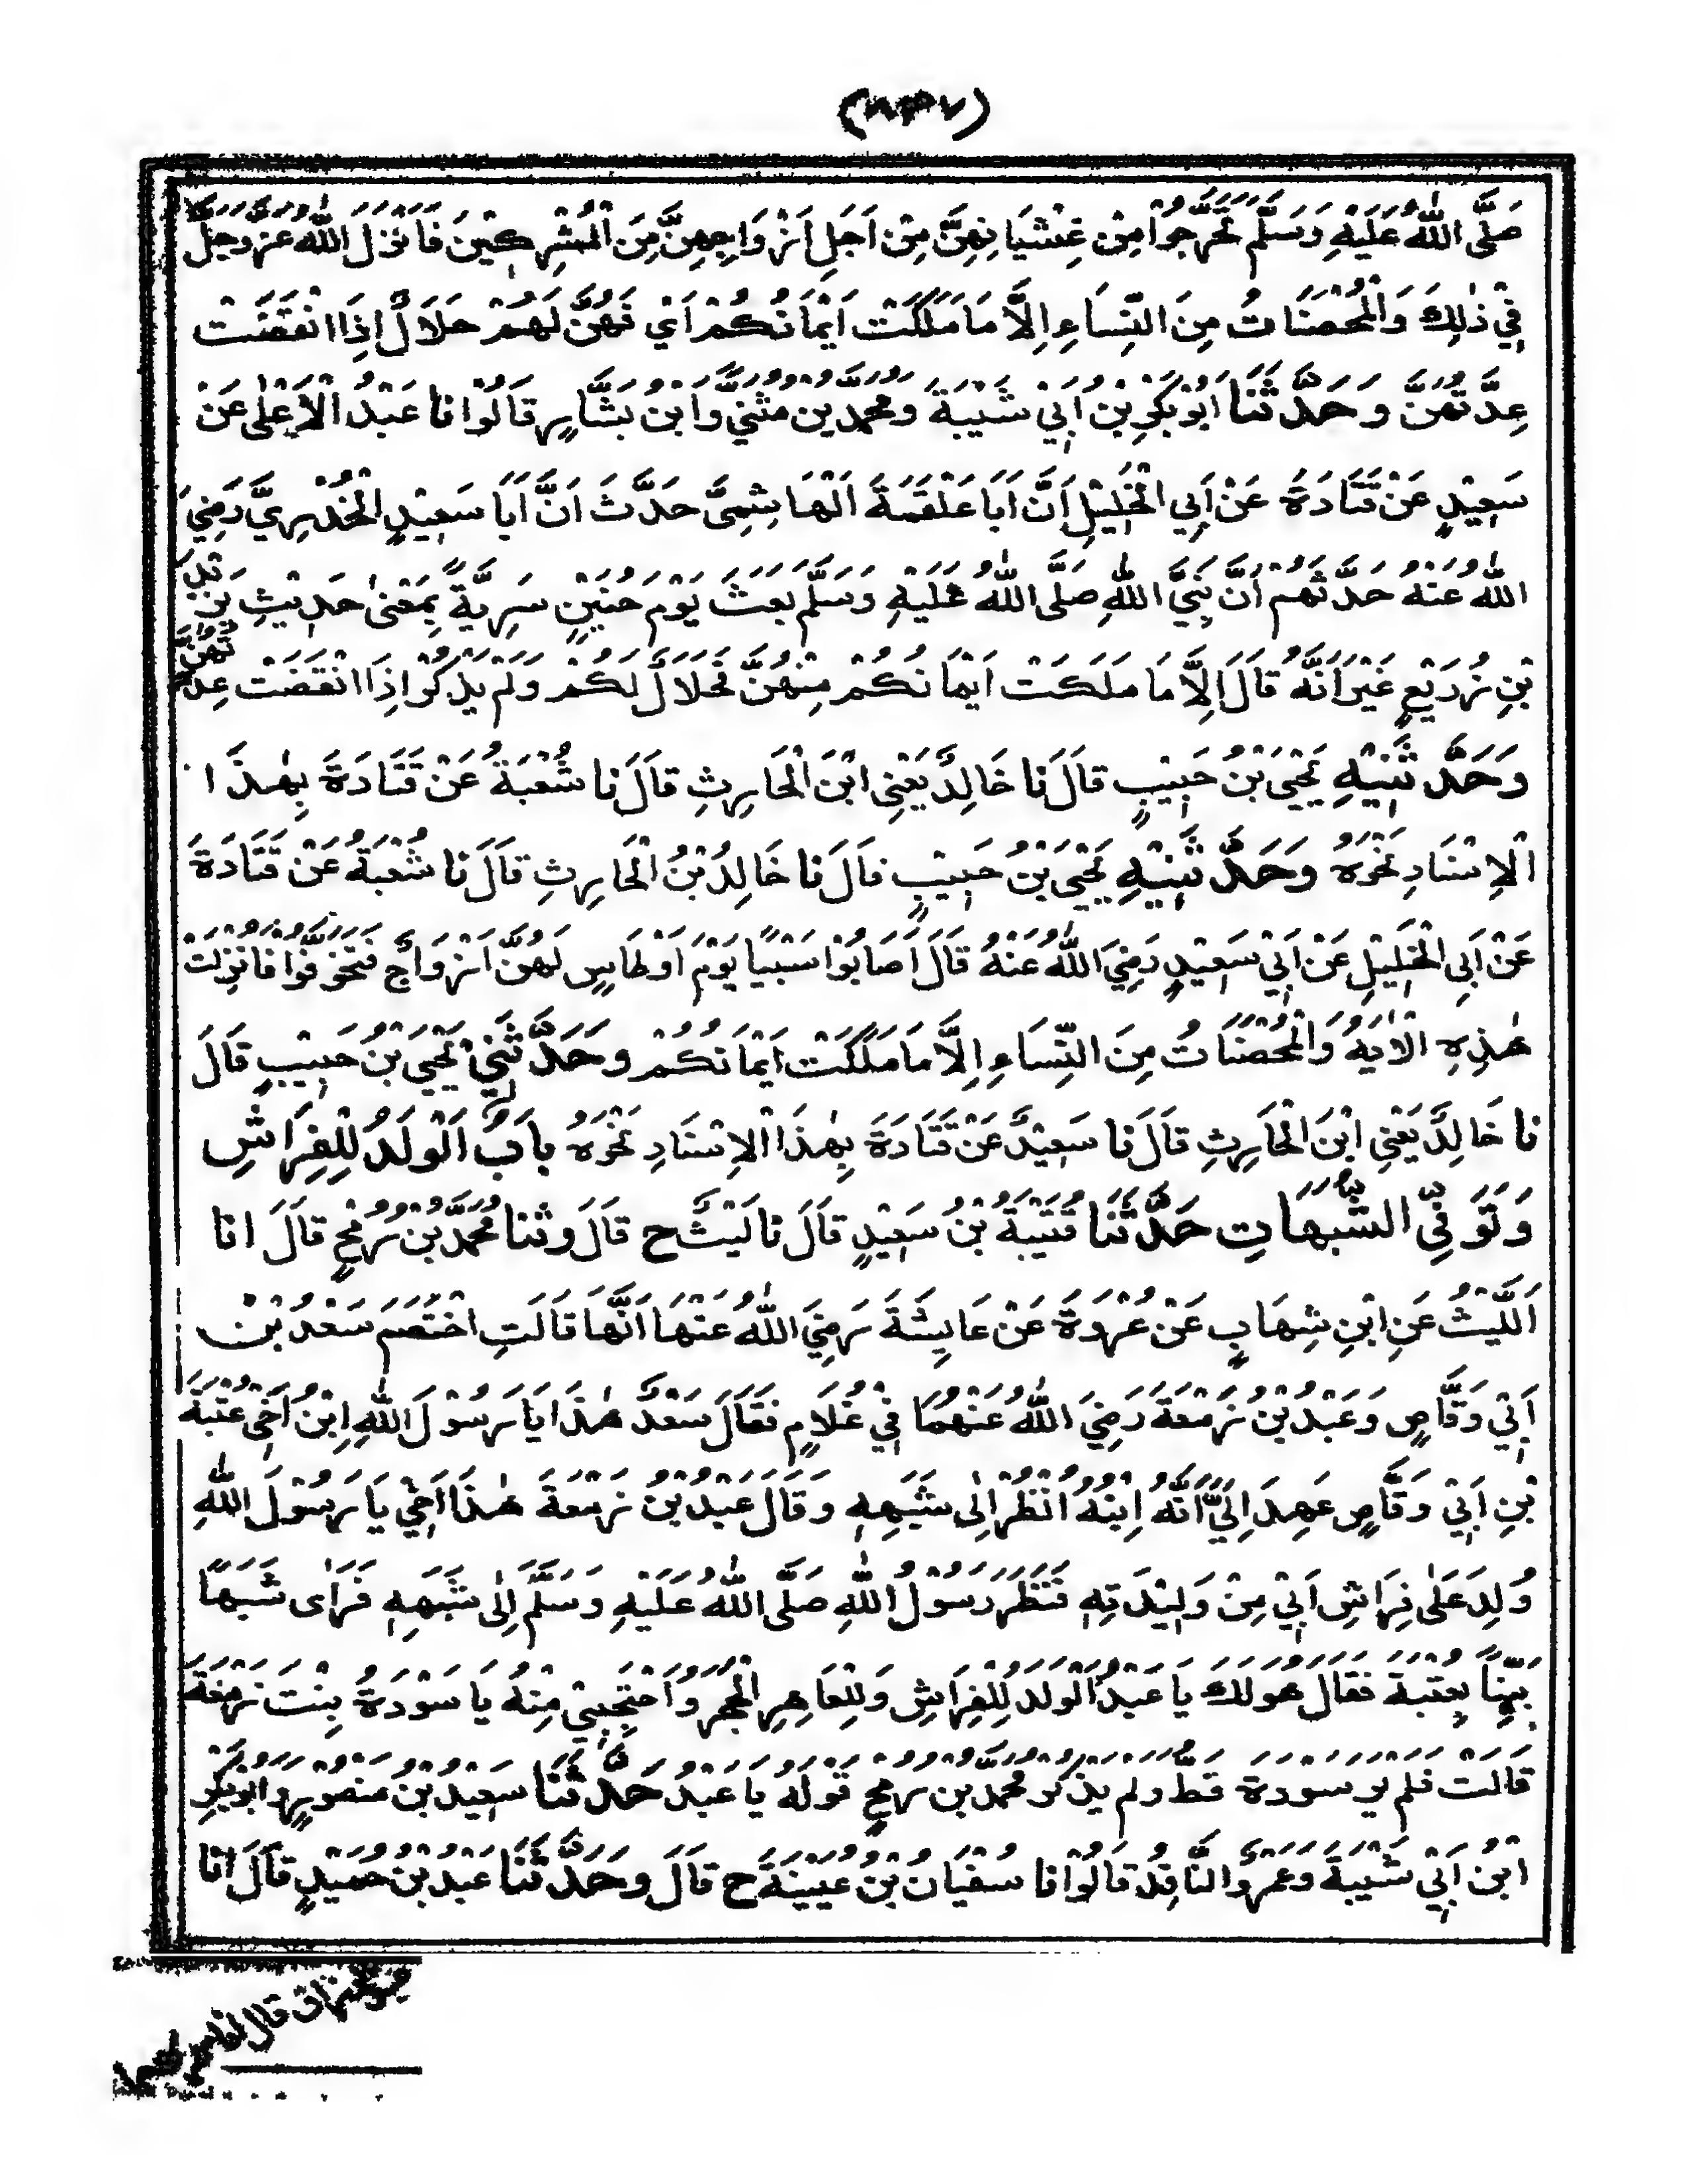 (٨٣٧)
صَلَّى اللّٰهُ عَلَيْهِ وَسَلَّمَ تَحَرَّجُوْا مِنْ غِشْيَانِهِنَّ مِنْ اَجَلِ اَزْوَاجِهِنَّ مِنَ الْمُشْرِكِيْنَ فَاَنْزَلَ اللّٰهُ عَزَّوَجَلَّ
فِيْ ذٰلِكَ وَالْمُحْصَنَاتُ مِنَ النِّسَاءِ اِلَّا مَا مَلَكَتْ اَيْمَانُكُمْ اَيْ فَهُنَّ لَهُمْ حَلَالٌ اِذَا انْقَضَتْ
عِدَّتُهُنَّ وَحَدَّثَنَا اَبُوْبَكْرِ بْنِ اَبِيْ شَيْبَةَ وَمُحَمَّدُ بْنُ مُثَنّٰي وَابْنُ بَشَّارٍ قَالُوْا نَا عَبْدُ الْاَعْلٰى عَنْ
سَعِيْدٍ عَنْ قَتَادَةَ عَنْ اَبِي الْخَلِيْلِ اَنَّ اَبَا عَلْقَمَةَ الْهَاشِمِيَّ حَدَّثَ اَنَّ اَبَا سَعِيْدٍ الْخُدْرِيَّ رَضِيَ
اللّٰهُ عَنْهُ حَدَّثَهُمْ اَنَّ نَبِيَّ اللّٰهِ صَلَّى اللّٰهُ عَلَيْهِ وَسَلَّمَ بَعَثَ يَوْمَ حُنَيْنٍ سَرِيَّةً بِمَعْنٰى حَدِيْثِ يَزِيْدَ
بْنِ زُرَيْعٍ غَيْرَ اَنَّهُ قَالَ اِلَّا مَا مَلَكَتْ اَيْمَانُكُمْ مِنْهُنَّ فَحَلَالٌ لَكُمْ وَلَمْ يَذْكُرْ اِذَا انْقَضَتْ عِدَّتُهُنَّ
وَحَدَّثَنِيْهِ يَحْيَى بْنُ حَبِيْبٍ قَالَ نَا خَالِدٌ يَعْنِى ابْنَ الْحَارِثِ قَالَ نَا شُعْبَةُ عَنْ قَتَادَةَ بِهٰذَا
الْاِسْنَادِ نَحْوَهُ وَحَدَّثَنِيْهِ يَحْيَى بْنُ حَبِيْبٍ قَالَ نَا خَالِدُ بْنُ الْحَارِثِ قَالَ نَا شُعْبَةُ عَنْ قَتَادَةَ
عَنْ اَبِى الْخَلِيْلِ عَنْ اَبِيْ سَعِيْدٍ رَضِيَ اللّٰهُ عَنْهُ قَالَ اَصَابُوْا سَبْيًا يَوْمَ اَوْطَاسٍ لَهُنَّ اَزْوَاجٌ فَتَخَوَّفُوْا فَانْزِلَتْ
هٰذِهِ الْاٰيَةُ وَالْمُحْصَنَاتُ مِنَ النِّسَاءِ اِلَّا مَا مَلَكَتْ اَيْمَانُكُمْ وَحَدَّثَنِيْ يَحْيَى بْنُ حَبِيْبٍ قَالَ
نَا خَالِدٌ يَعْنِي ابْنَ الْحَارِثِ قَالَ نَا سَعِيْدٌ عَنْ قَتَادَةَ بِهٰذَا الْاِسْنَادِ نَحْوَهُ بَابُ الْوَلَدُ لِلْفِرَاشِ
وَتَوَفِّي الشُّبُهَاتِ حَدَّثَنَا قُتَيْبَةُ بْنُ سَعِيْدٍ قَالَ نَا لَيْثٌ ح قَالَ وثنا مُحَمَّدُ بْنُ رُمْحٍ قَالَ انا
اَللَّيْثُ عَنِ ابْنِ شِهَابٍ عَنْ عُرْوَةَ عَنْ عَائِشَةَ رَضِيَ اللّٰهُ عَنْهَا اَنَّهَا قَالَتِ اخْتَصَمَ سَعْدُ بْنُ
اَبِيْ وَقَّاصٍ وَعَبْدُ بْنُ زَمْعَةَ رَضِيَ اللّٰهُ عَنْهُمَا فِيْ غُلَامٍ فَقَالَ سَعْدٌ هٰذَا يَا رَسُوْلَ اللّٰهِ اِبْنُ اَخِيْ عُتْبَةَ
بْنِ اَبِيْ وَقَّاصٍ عَهِدَ اِلَيَّ اَنَّهُ اِبْنُهُ انْظُرْ اِلٰى شَبَهِهِ وَقَالَ عَبْدُ بْنُ زَمْعَةَ هٰذَا اَخِيْ يَا رَسُوْلَ اللّٰهِ
وُلِدَ عَلٰى فِرَاشِ اَبِيْ مِنْ وَلِيْدَتِهِ فَنَظَرَ رَسُوْلُ اللّٰهِ صَلَّى اللّٰهُ عَلَيْهِ وَسَلَّمَ اِلٰى شَبَهِهِ فَرَاٰى شَبَهًا
بَيِّنًا بِعُتْبَةَ فَقَالَ هُوَ لَكَ يَا عَبْدُ الْوَلَدُ لِلْفِرَاشِ وَلِلْعَاهِرِ الْحَجَرُ وَاحْتَجِبِيْ مِنْهُ يَا سَوْدَةُ بِنْتَ زَمْعَةَ
قَالَتْ فَلَمْ يَرَ سَوْدَةَ قَطُّ وَلَمْ يَذْكُرْ مُحَمَّدُ بْنُ رُمْحٍ قَوْلَهُ يَا عَبْدُ حَدَّثَنَا سَعِيْدُ بْنُ مَنْصُوْرٍ وَابُوْبَكْرِ
ابْنُ اَبِيْ شَيْبَةَ وَعَمْرٌو النَّاقِدُ قَالُوْا نا سُفْيَانُ بْنُ عُيَيْنَةَ ح قَالَ وَحَدَّثَنَا عَبْدُ بْنُ حُمَيْدٍ قَالَ انا